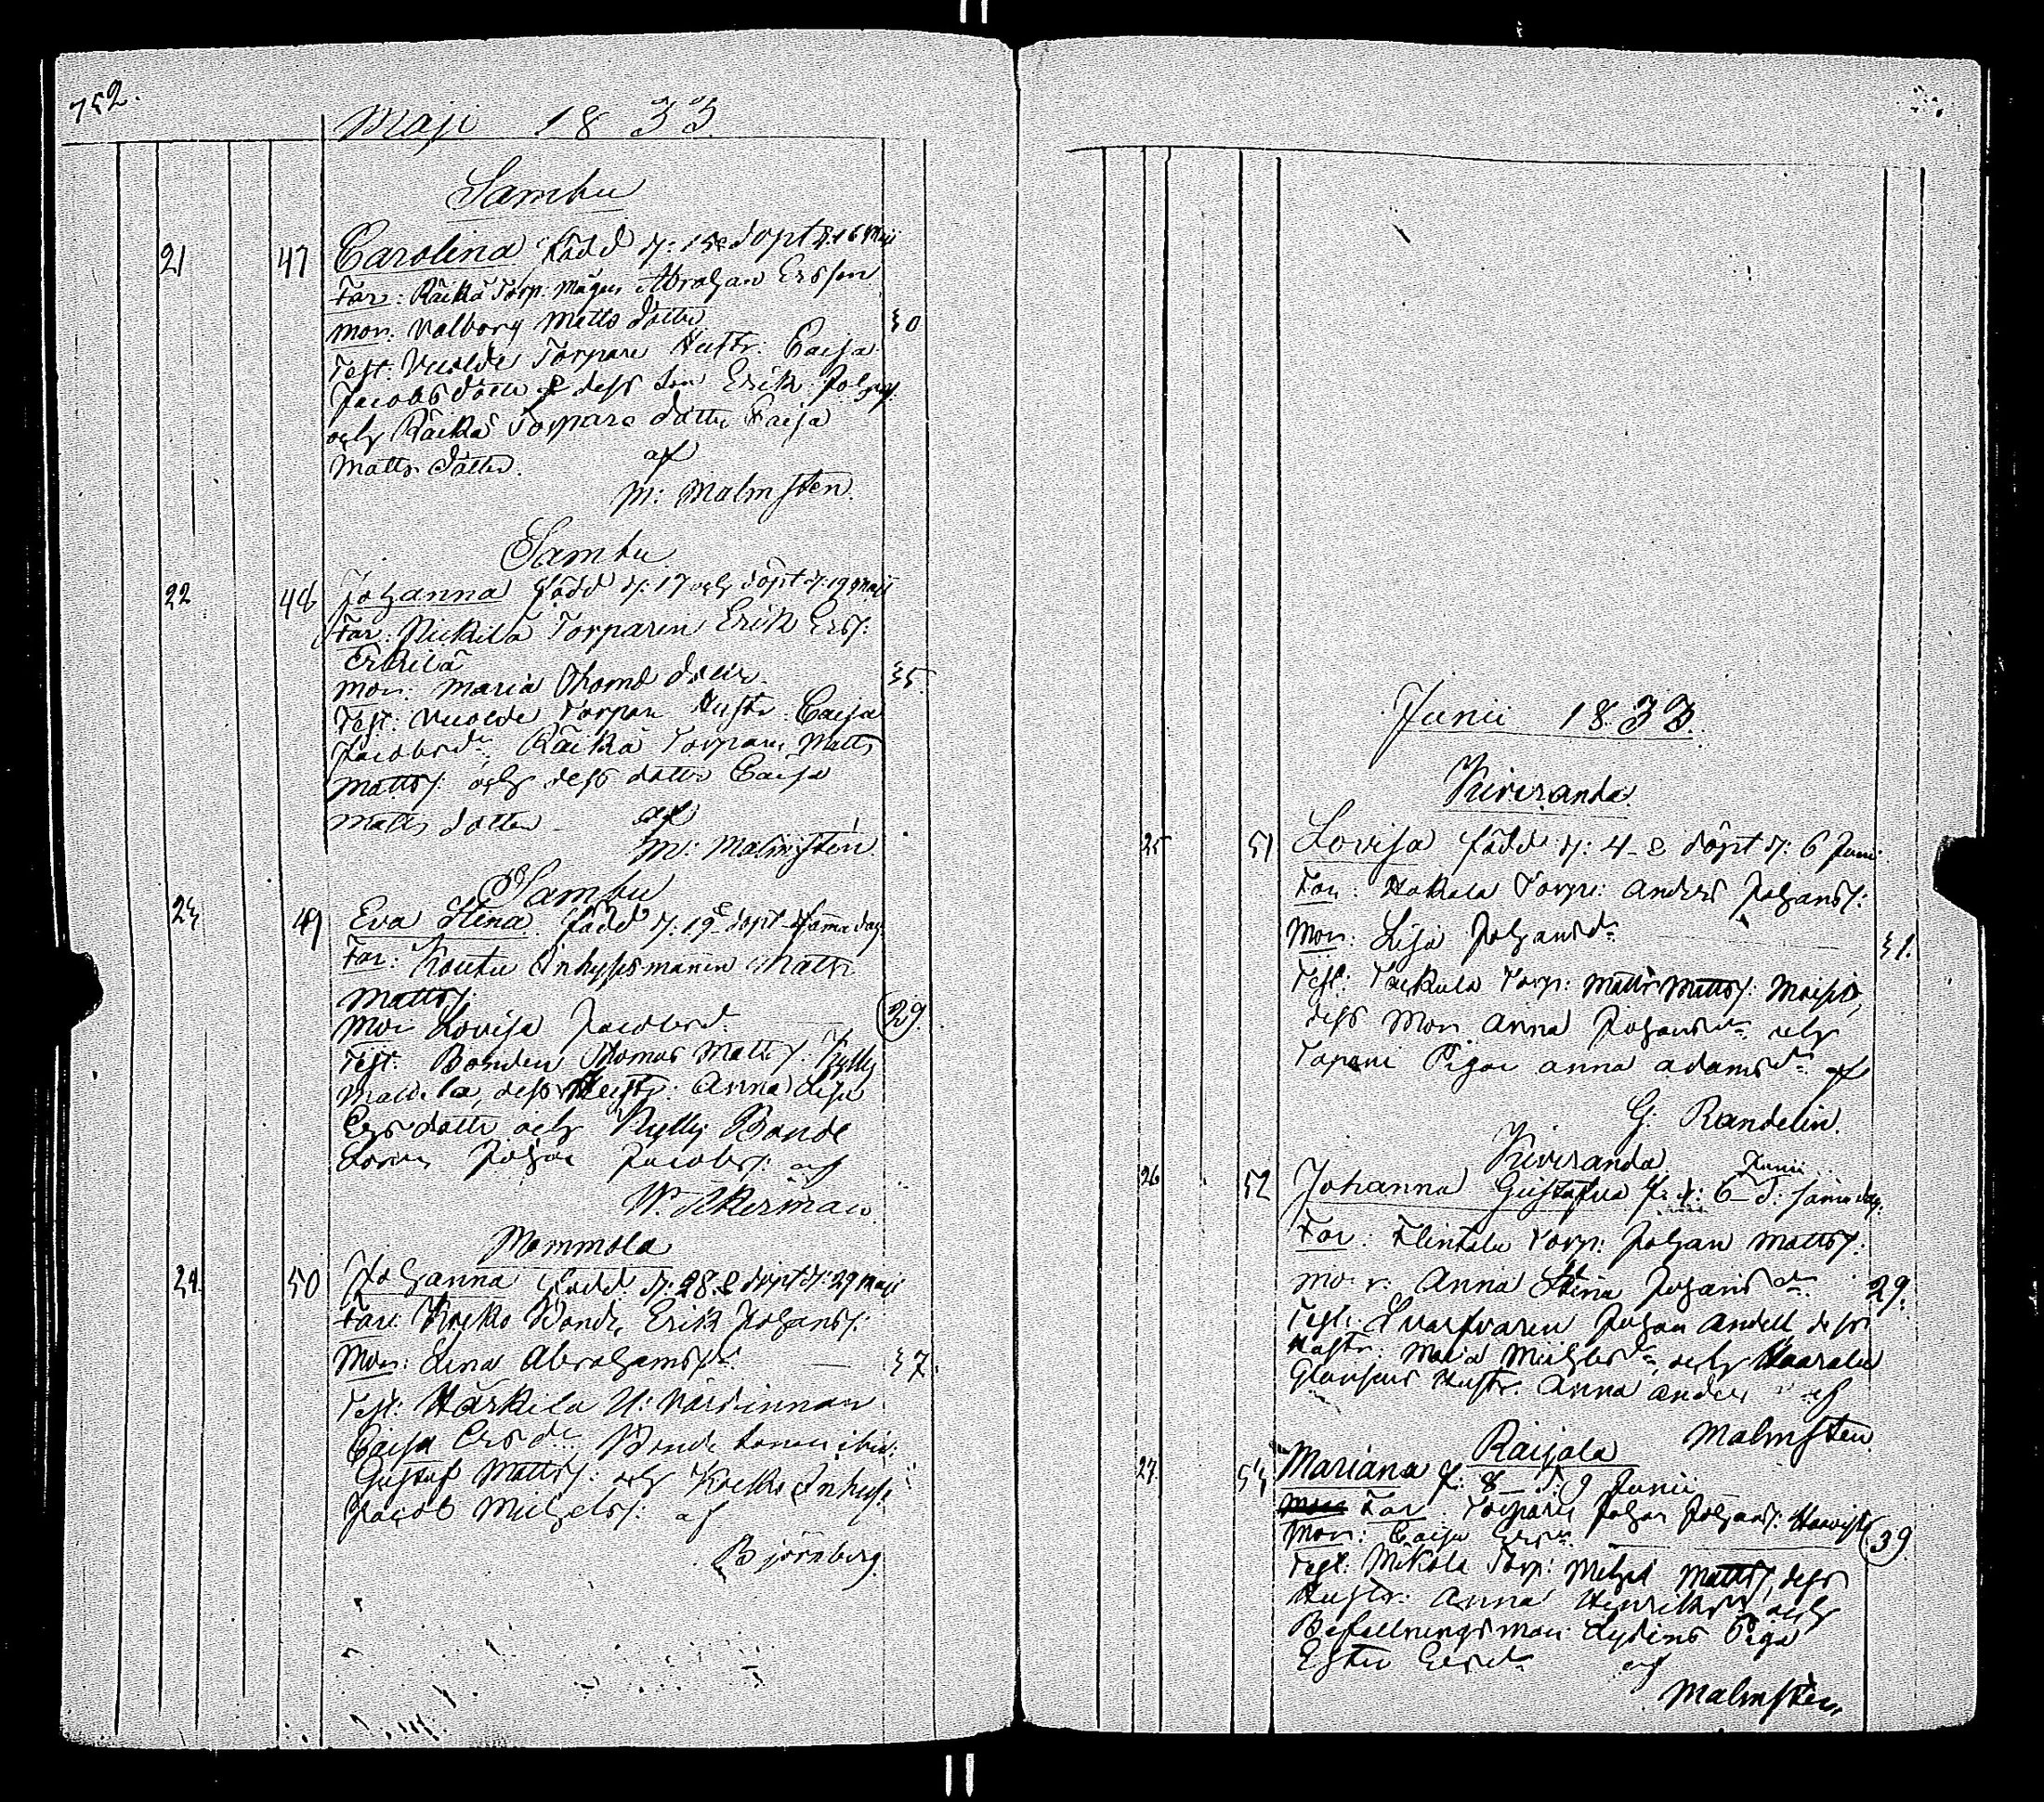 752.
Maji 1833
Sambu
21 47 Carolina född d: 15 e döpt d: 16 Maji
Far: Räikä Torp: Mågen Abraham Ersson
Mor: Valborg Matts dotter 30
Test: Torpare Hustr: Caisa
Jacobs dotter & dess Son Erik Johans:
och Räikä Torpare dotter Caisa
Matts dotter. af
M: Malmsten.
Sambu
22 48 Johanna född d: 17 och döpt d: 19 Maji
Far: Torparen Erik Ers:
Erkilä
Mor: Maria Thoms dotter. 35.
Test: Torpare Hustr: Caisa
Jacobsdr Räikä Torpare Matts
Matts: och dess dotter Caisa
Matts dotter af
M: Malmsten.
Sambu
23 49 Eva Stina. född d: 19 e döpt samma dag
Far: Inhyses mannen Matts
Matts:
Mor Lovisa Jacobsd. 29.
Test: Bonden Thomas Matts:
dess Hustr: Anna Lisa
Ers dotter och Bonde
Sonen Johan Jacobs: af
W. Åkerman
Mommola
24. 50 Johanna född d: 28 e döpt d: 29 Maji
Far: Bonde, Erik Johans:
Mor: Lena Abrahamsdr. 37.
Test: Härkila U: Värdinnan
Caisa Ersdr Bonde Sonen ibid:
Gustaf Matts: och Inhys:
Jacob Michels: af
Björnberg.
Junii 1833.
Kiviranda
25 51 Lovisa född d: 4 e döpt d: 6 Junii
Far: Torpn: Anders Johans:
Mor: Lisa Johansdr 31.
Test: Torp: Matts Matts:
dess Mor Anna Johansdr och
Pigan Anna Adamsdr af
G. Randelin.
Kiviranda Junii
26 52 Johanna Gustafva f. d: 6 d: samma dag.
Far: Flinkala Torp: Johan Matts:
mor: Anna Stina Johansdr 29.
Test: Svarfvaren Johan Andell dess
Hustr: Maria Michelsdr och
Hustr: Anna Anders af
Malmsten.
Raijala
27 53 Mariana f: 8 d: 9 Junii
Far: Torparen Johan Johans:
Mor: Caisa Ersdr 39
Test: Mikola Torp: Michel Matts:, dess
Hustr: Anna Henriksdr och
Befallningsman Piga
Ester Ersdr af
Malmsten